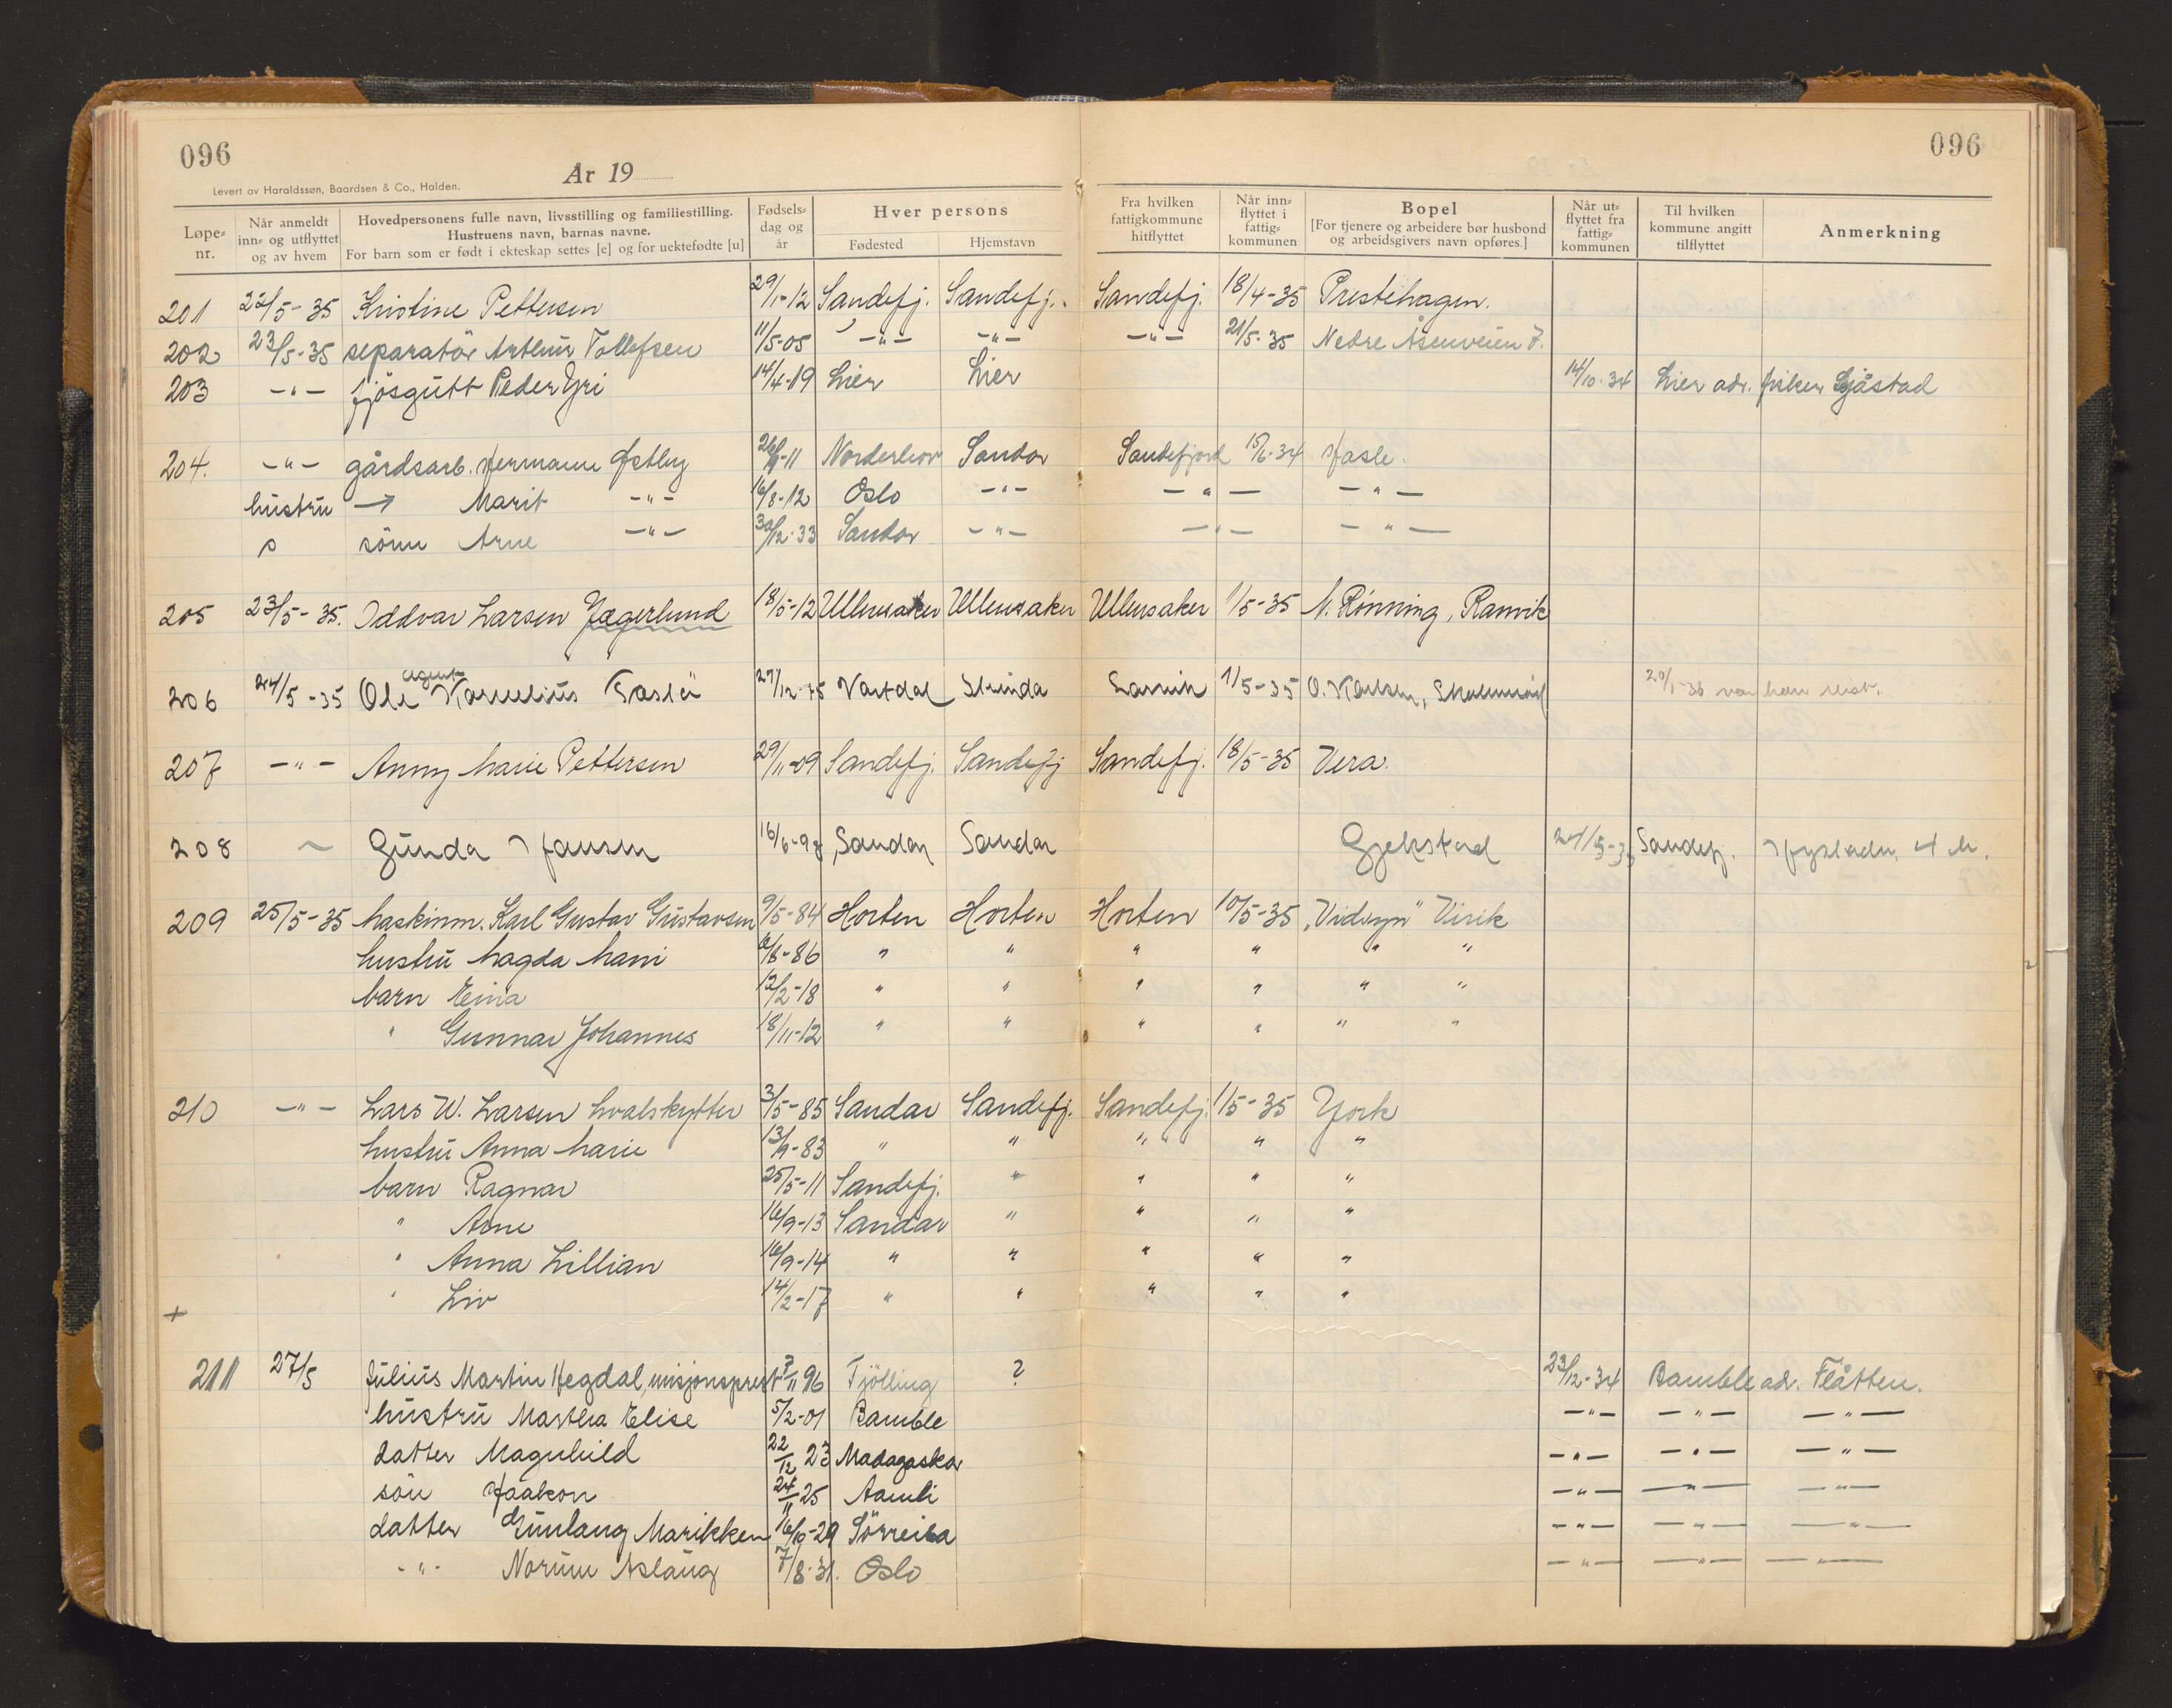 096
096
År 19
Levert av Haraldssøn, Baardsen & Co., Halden.
Løpe-nr. Når anmeldt inn- og utflyttet og av hvem Hovedpersonens fulle navn, livsstilling og familiestilling. Hustruens navn, barnas navne. For barn som er født i ekteskap settes [e] og for uektefødte [u] Fødsels-dag og år Hver persons Fødested Hjemstavn Fra hvilken fattigkommune hitflyttet Når inn-flyttet i fattig-kommunen Bopel [For tjenere og arbeidere bør husbond og arbeidsgivers navn opføres.] Når ut-flyttet fra fattig-kommunen Til hvilken kommune angitt tilflyttet Anmerkning
201 22/5-35 Kristine Pettersen 29/1-12 Sandefj. Sandefj. Sandefj. 18/4-35 Prestehagen.
202 23/5-35 separatör Arthur Tollefsen 11/5-05 -"- -"- -"- 21/5-35 Nedre Åsenveien 7.
203 -"- fjösgutt Peder Gri 14/4-19 Lier Lier 14/10-34 Lier adr. fisker Sjåstad
204. -"- gårdsarb. Hermann Østby 26/9-11 Norderhov Sandar Sandefjord 15/6-34 Hasle.
hustru → Marit -"- 16/8-12 Oslo -"- -"- -"-
s sönn Arne -"- 30/12-33 Sandar -"- -"- -"-
205 23/5-35. Oddvar Larsen Jægerlund 18/5-12 Ullensaker Ullensaker Ullensaker 1/5-35 N. Rönning, Ranvik
206 24/5-35 agent Ole Kornelius 27/12-75 Vartdal Strinda Larvik 1/5-35 O. Karlsen, 20/1-36 han reist.
207 -"- Anny Marie Pettersen 29/11-09 Sandefj. Sandefj Sandefj. 18/5-35 Vera.
208 ~ Gunda Hansen 16/6-98 Sandar Sandar Gjekstad 24/5-35 Sandefj. 4 M.
209 25/5-35 Maskinm. Karl Gustav Gustavsen 9/5-84 Horten Horten Horten 10/5-35 "Vidsyn" Virik
hustru Magda Mari 6/8-86 " " " " " "
barn Erna 12/2-18 " " " " " "
" Gunnar Johannes 18/11-12 " " " " " "
210 -"- Lars W. Larsen hvalskytter 3/5-85 Sandar Sandefj. Sandefj. 1/5-35 York
hustru Anna Marie 13/9-83 " " " " "
barn Ragnar 25/5-11 Sandefj. " " " "
" Arne 16/9-13 Sandar " " " "
" Anna Lillian 16/9-14 " " " " "
" Liv 14/2-17 " " " " "
+
211 27/5 Julius Martin Hegdal, misjonsprest 3/11 96 Tjölling ? 23/12-34 Bamble adr. Flåtten.
hustru Martha Elise 5/2-01 Bamble -"- -"- -"-
datter Magnhild 22/12 23 Madagaskar -"- -"- -"-
sön Haakon 24/11 25 Aamli -"- -"- -"-
datter Gunlaug Marikken 16/10-29 Sörreisa -"- -"- -"-
-"- Norunn Aslaug 7/8-31. Oslo -"- -"- -"-